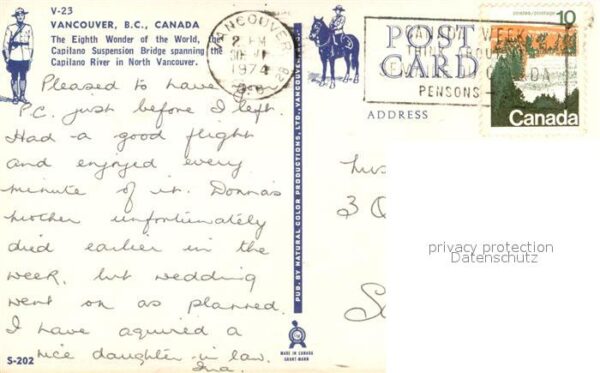 V-23
VANCOUVER, B.C., CANADA
The Eighth Wonder of the World, the
Capilano Suspension Bridge spanning the
Capilano River in North Vancouver.
Pleased to have
P.C. just before I left.
Had a good flight
and enjoyed every
minute of it. Donna's
mother unfortunately
died earlier in the
week, but wedding
went on as planned.
I have aquired a
nice daughter-in-law.
Ina.
S-202
PUB. BY NATURAL COLOR PRODUCTIONS, LTD., VANCOUVER,
MADE IN CANADA
GRANT-MANN
VANCOUVER
2 PM
1974
POST
CARD
PENSONS-Y
ADDRESS
postes/postage
10
Canada
3
privacy protection
Datenschutz